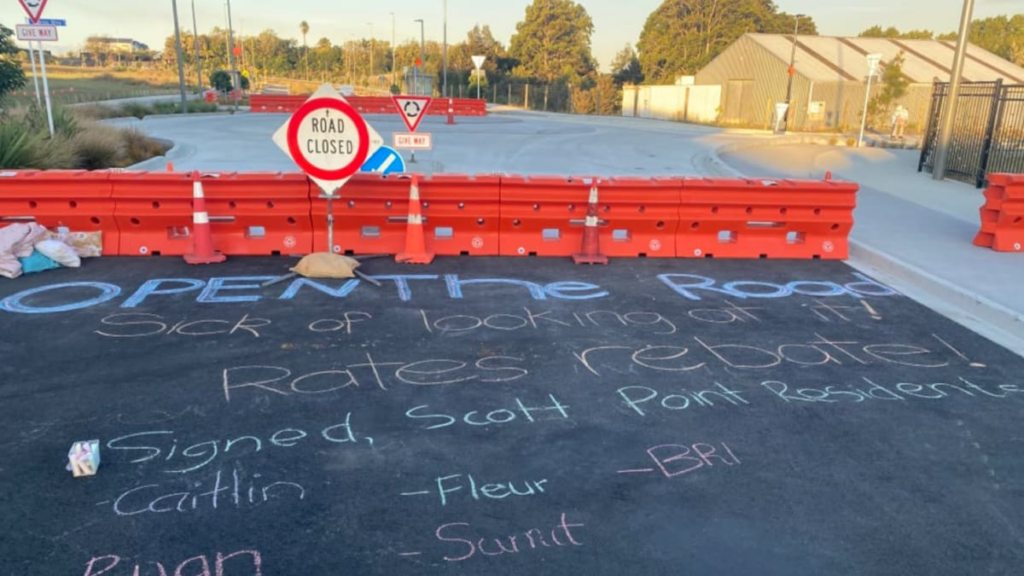 GIVE WAY
ROAD
CLOSED
GIVE WAY
OPEN The Road
Sick of looking at it!
Rates rebate!
Signed, Scott Point Residents
-Caitlin
-Fleur
-BRI
Ryan
-Sumit